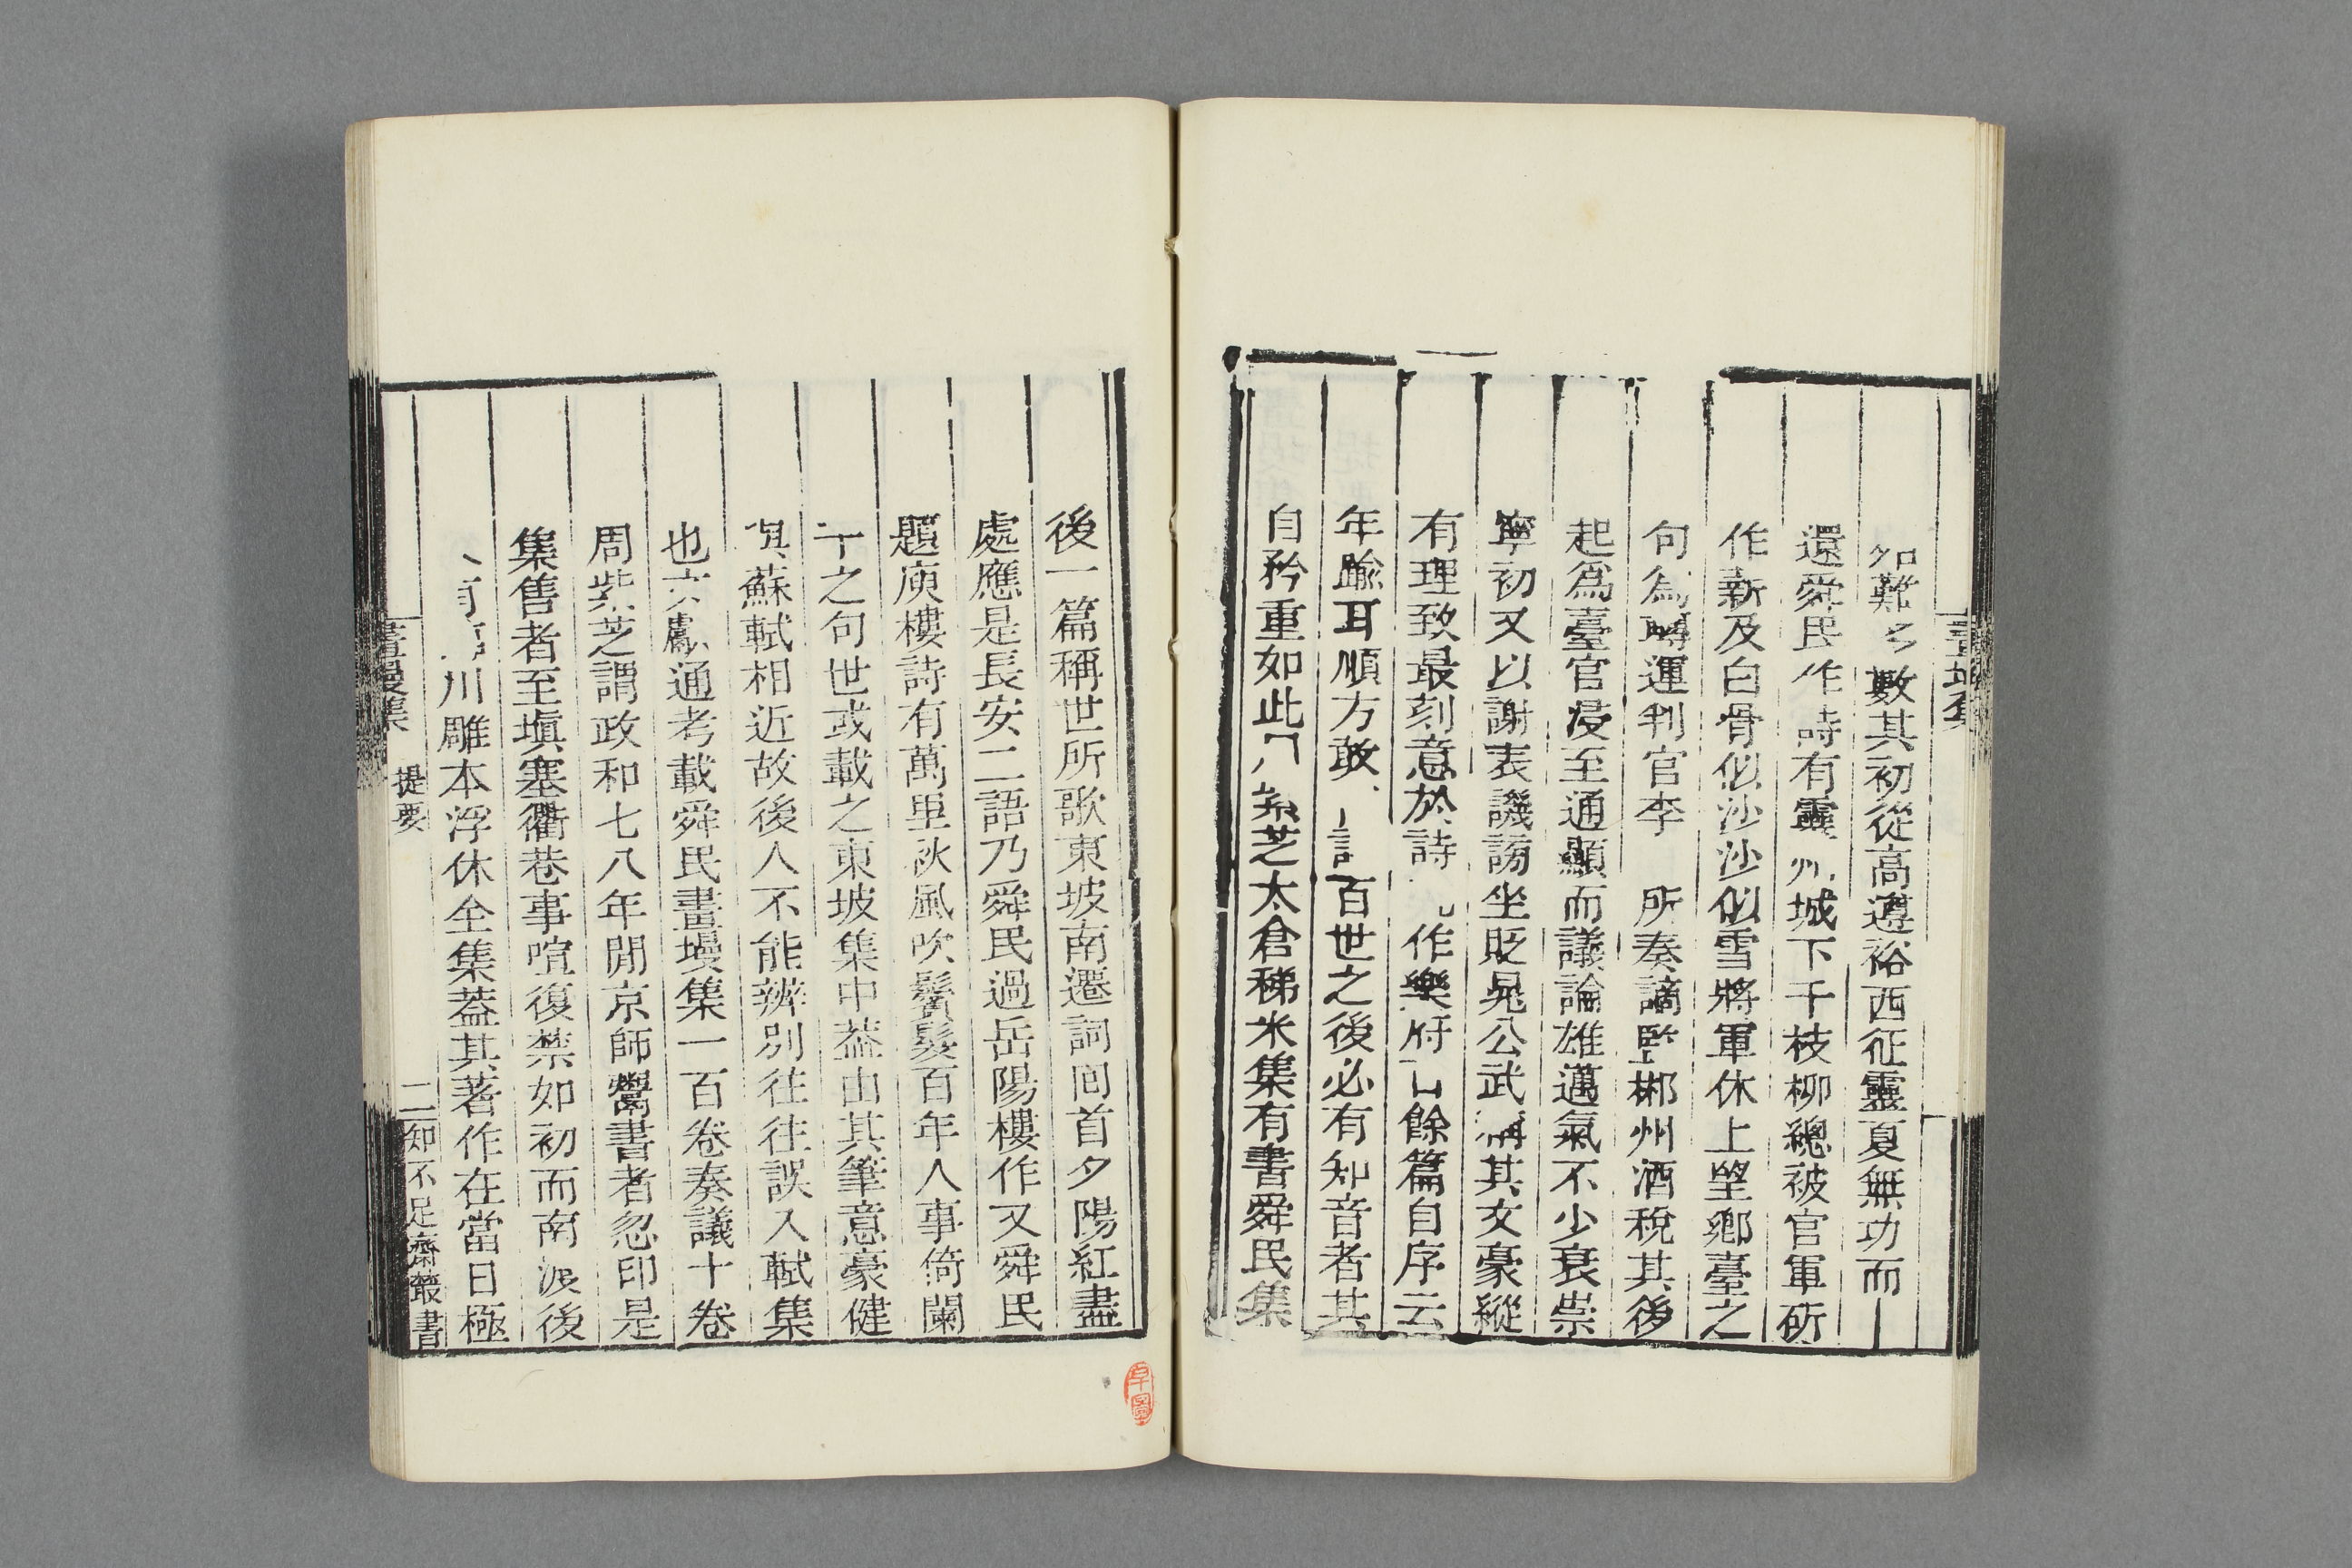 畫墁集
如難以數其初從高遵裕西征靈夏無功而
還舜民作詩有靈州城下千枝柳總被官軍斫
作薪及白骨似沙沙似雪將軍休上望鄉臺之
句為轉運判官李 所奏謫監郴州酒稅其後
起為臺官浸至通顯而議論雄邁氣不少衰崇
寧初又以謝表譏謗坐貶晁公武稱其文豪縱
有理致最刻意於詩 作樂府 百餘篇自序云
年踰耳順方敢 言百世之後必有知音者其
自矜重如此 周紫芝太倉稊米集有書舜民集
後一篇稱世所歌東坡南遷詞回首夕陽紅盡
處應是長安二語乃舜民過岳陽樓作又舜民
題庾樓詩有萬里秋風吹鬢髮百年人事倚闌
干之句世或載之東坡集中葢由其筆意豪健
與蘇軾相近故後人不能辨別往往誤入軾集
也文獻通考載舜民畫墁集一百卷奏議十卷
周紫芝謂政和七八年閒京師鬻書者忽印是
集售者至塡塞衢巷事喧復禁如初而南渡後
又有 川雕本浮休全集葢其著作在當日極
畫墁集 提要 二 知不足齋叢書